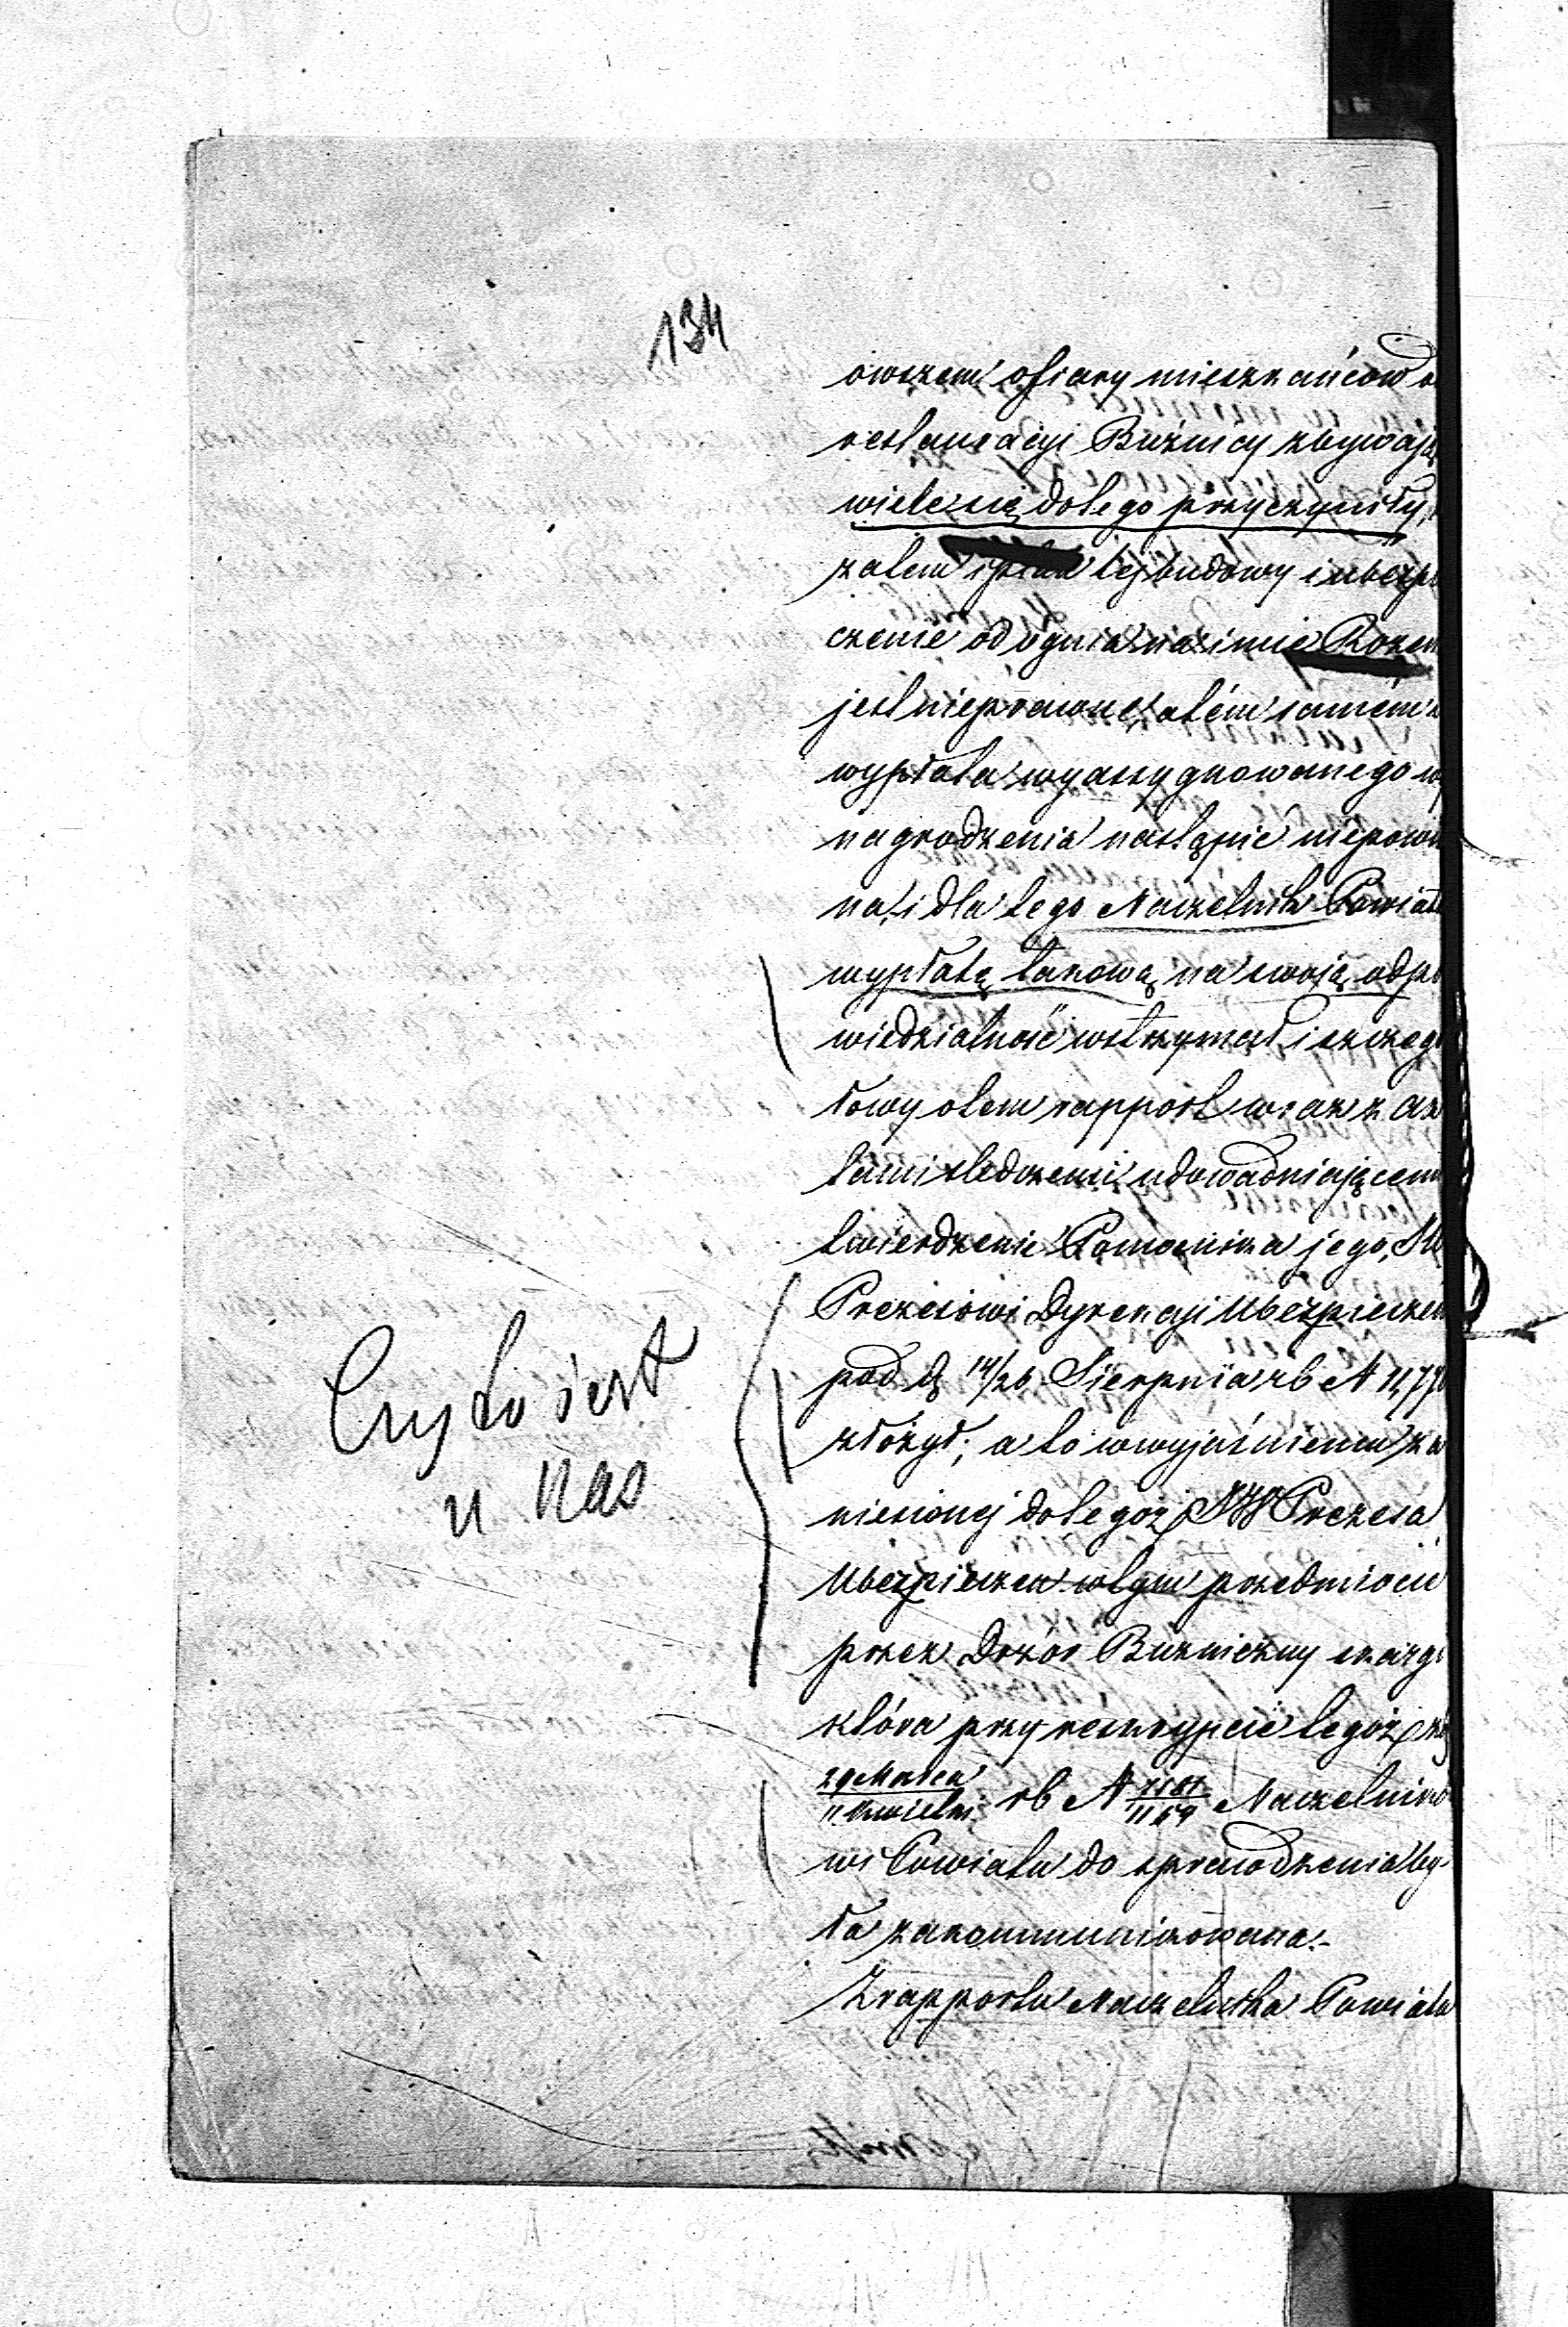 134
owszem ofiary mieszkańców
restauracyi Bużnicy zbywają
wiele się do tego przyczyniły,
zatem i plan tej budowy i ubezpie
czenie od ognia na imie Rozen
jest nieprawne, a tém samém
wypłata wyassygnowanego wy
nagrodzenia nastąpić niepowin
na, i dla tego Naczelnik Powiatu
wypłatę takową na swoją odpo
wiedzialność wstrzymał i szczegó
łowy o tem rapport wraz z ak
tami śledczemi udowadniającemi
twierdzenie Pomocnika jego, JW
Prezesowi Dyrekcyi Ubezpieczeń
pod d. 14/26 Sierpnia rb N 11,77
złożył; a to w wyjaśnieniu za
niesionej do tegoż JW Prezesa
Ubezpieczeń w tym przedmiocie
przez Dozór Bużniczny skargi
która przy reskrypcie tegoż
29 Marca / 11 Kwietnia rb N Naczelniko
wi Powiatu do sprawdzenia by-
ła zakommunikowana.-
Z rapportu Naczelnika Powiatu
Czy to jest
u nas